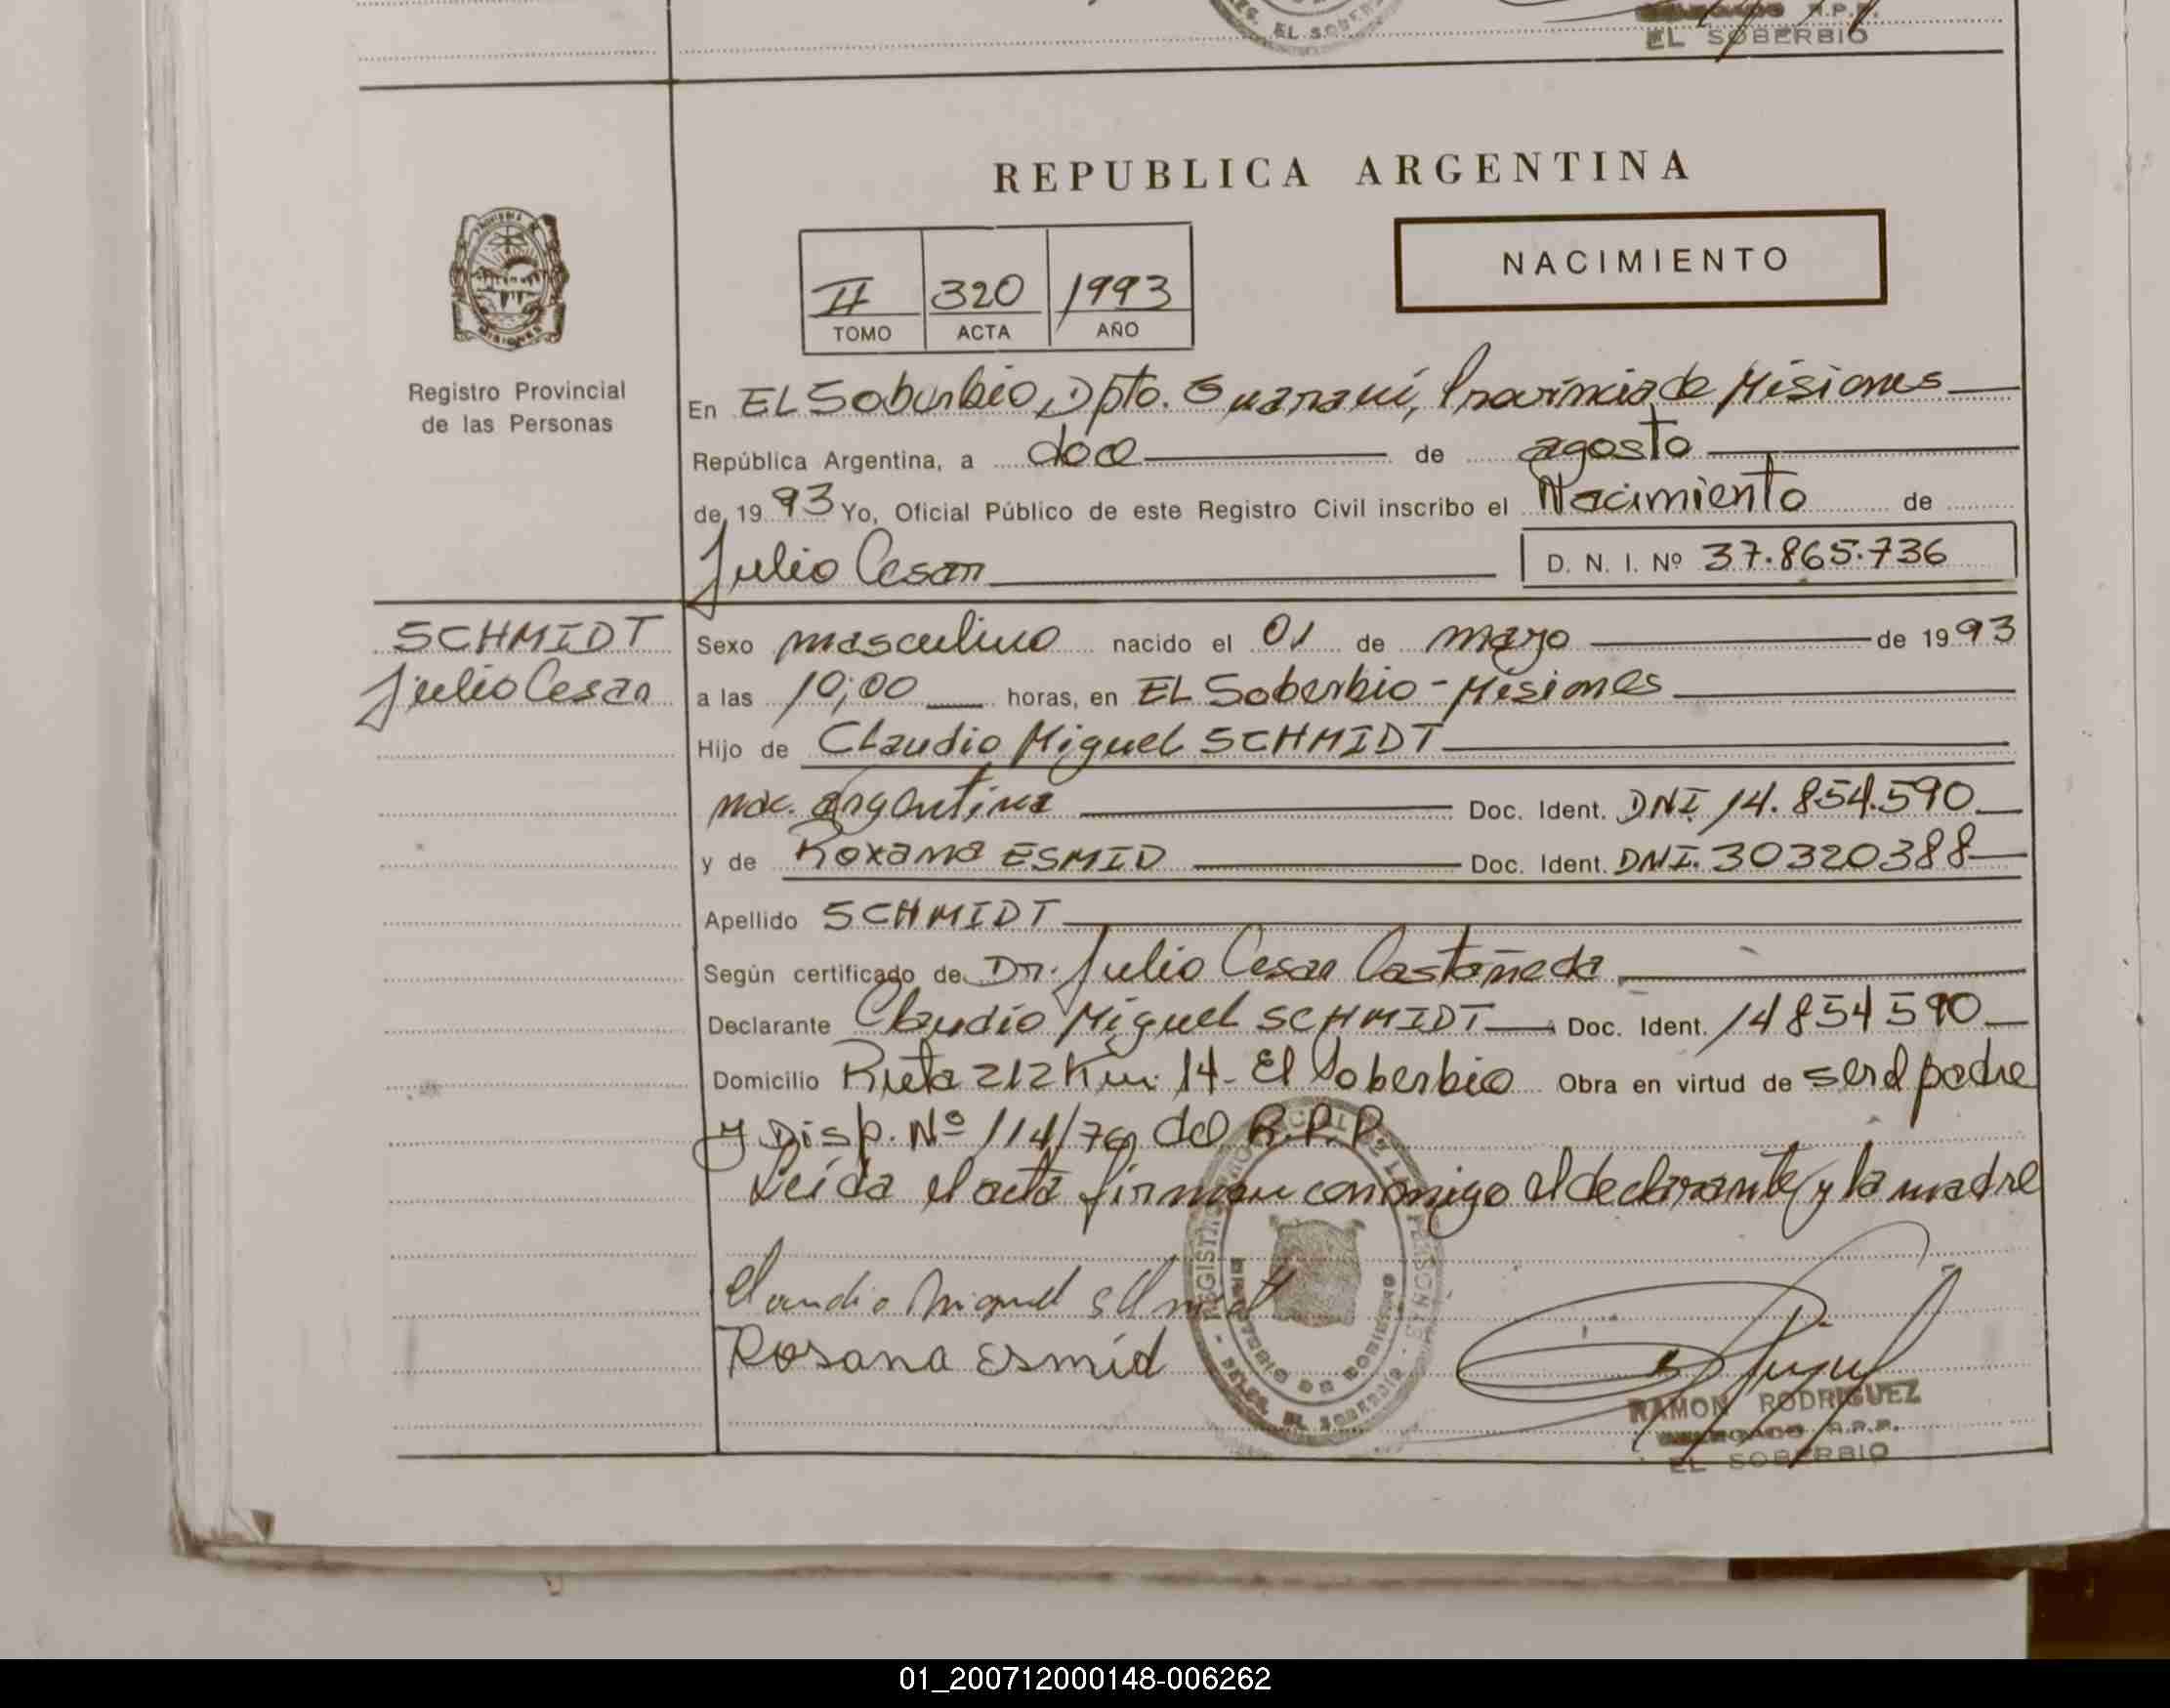 EL SOBERBIO
REPUBLICA ARGENTINA
NACIMIENTO
II 320 1993
TOMO ACTA AÑO
Registro Provincial
de las Personas
En EL Soberbio, Dpto. Guaraní, Provincia de Misiones
República Argentina, a doce de agosto
de 1993 Yo, Oficial Público de este Registro Civil inscribo el Nacimiento de
Julio Cesar D. N. I. Nº 37.865.736
SCHMIDT
Julio Cesar
Sexo masculino nacido el 01 de mayo de 1993
a las 10,00 horas, en EL Soberbio - Misiones
Hijo de Claudio Miguel SCHMIDT
nac. argentina Doc. Ident. DNI 14.854.590
y de Roxana ESMID Doc. Ident. DNI. 30320388
Apellido SCHMIDT
Según certificado de Dr. Julio Cesar Castañeda
Declarante Claudio Miguel SCHMIDT Doc. Ident. 14854590
Domicilio Ruta 212 Km. 14 - El Soberbio Obra en virtud de ser el padre
y Disp. Nº 114/76 del R.P.P.
Leída el acta firman conmigo el declarante y la madre
Claudio Miguel
Rosana Esmid
RAMON RODRIGUEZ
R.P.P.
EL SOBERBIO
01_200712000148-006262